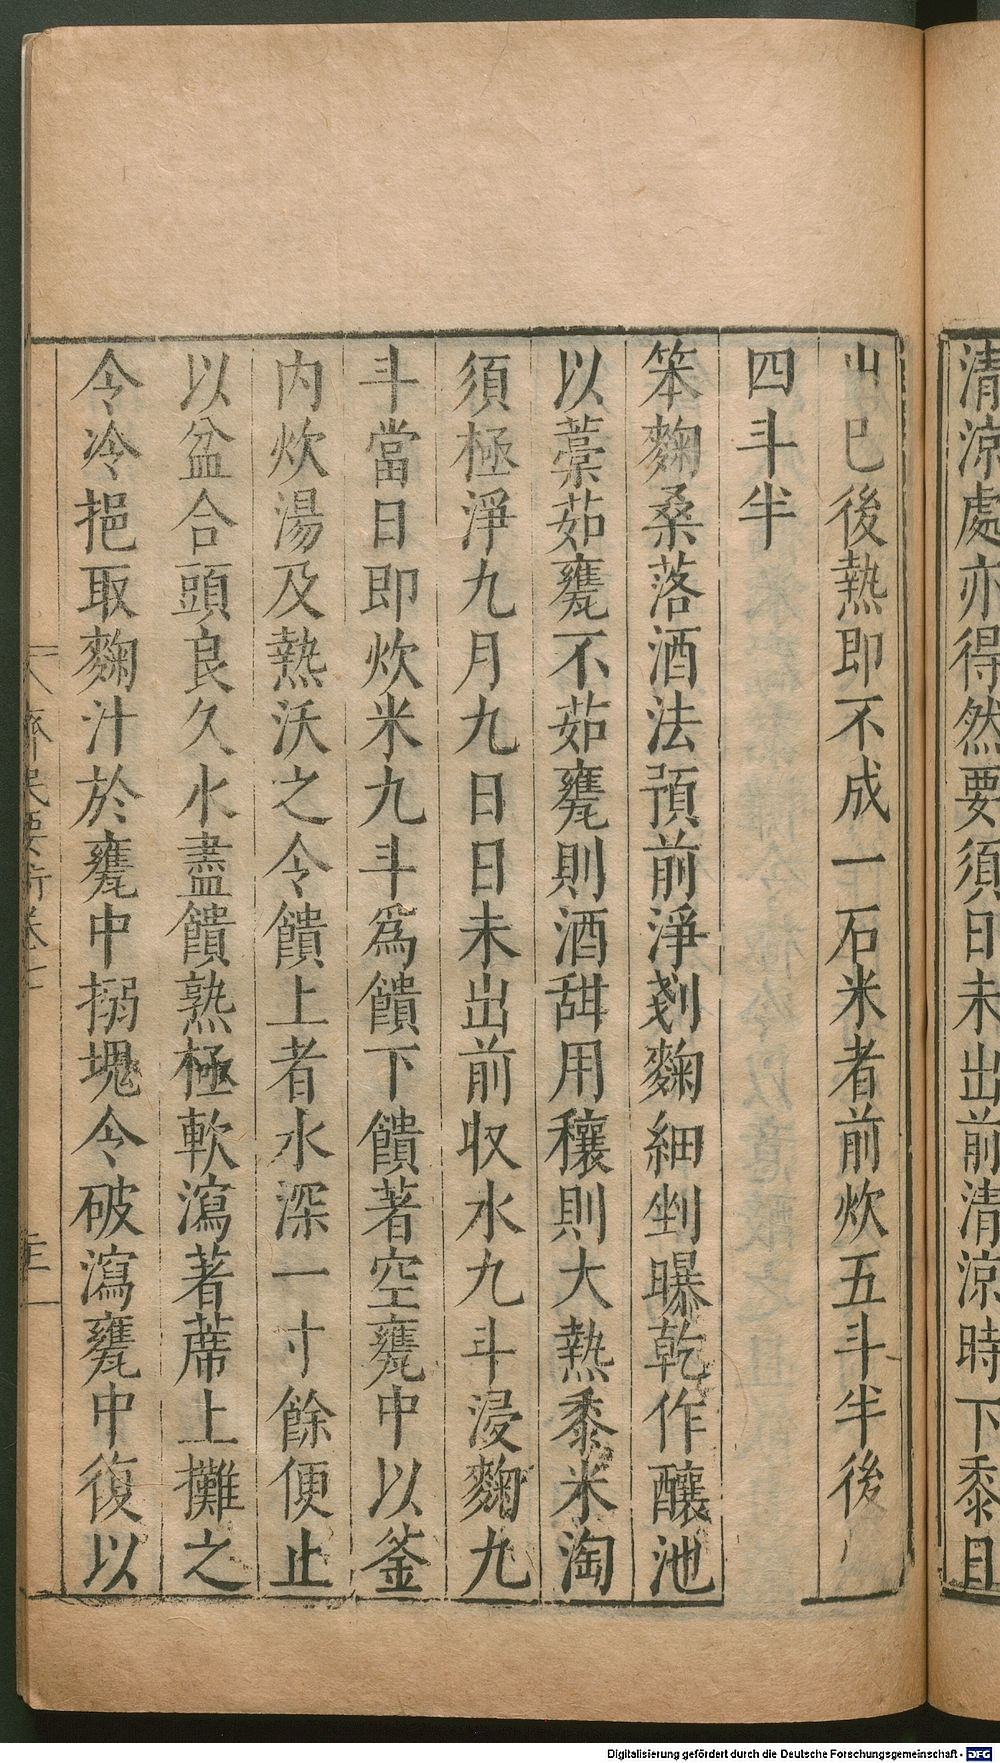 清涼處亦得然要須日未出前清涼時下黍且
出巳後熱即不成一石米者前炊五斗半後
四斗半
笨麴桑落酒法預前淨剗麴細剉曝乾作釀池
以藁茹甕不茹甕則酒甜用穰則大熱黍米淘
須極淨九月九日日未出前收水九斗浸麴九
斗當日即炊米九斗爲饙下饙著空甕中以釜
内炊湯及熱沃之令饙上者水深一寸餘便止
以盆合頭良久水盡饙熟極軟瀉著蓆上攤之
令冷挹取麴汁於甕中搦塊令破瀉甕中復以
齊民要術卷七
Digitalisierung gefördert durch die Deutsche Forschungsgemeinschaft - DFG